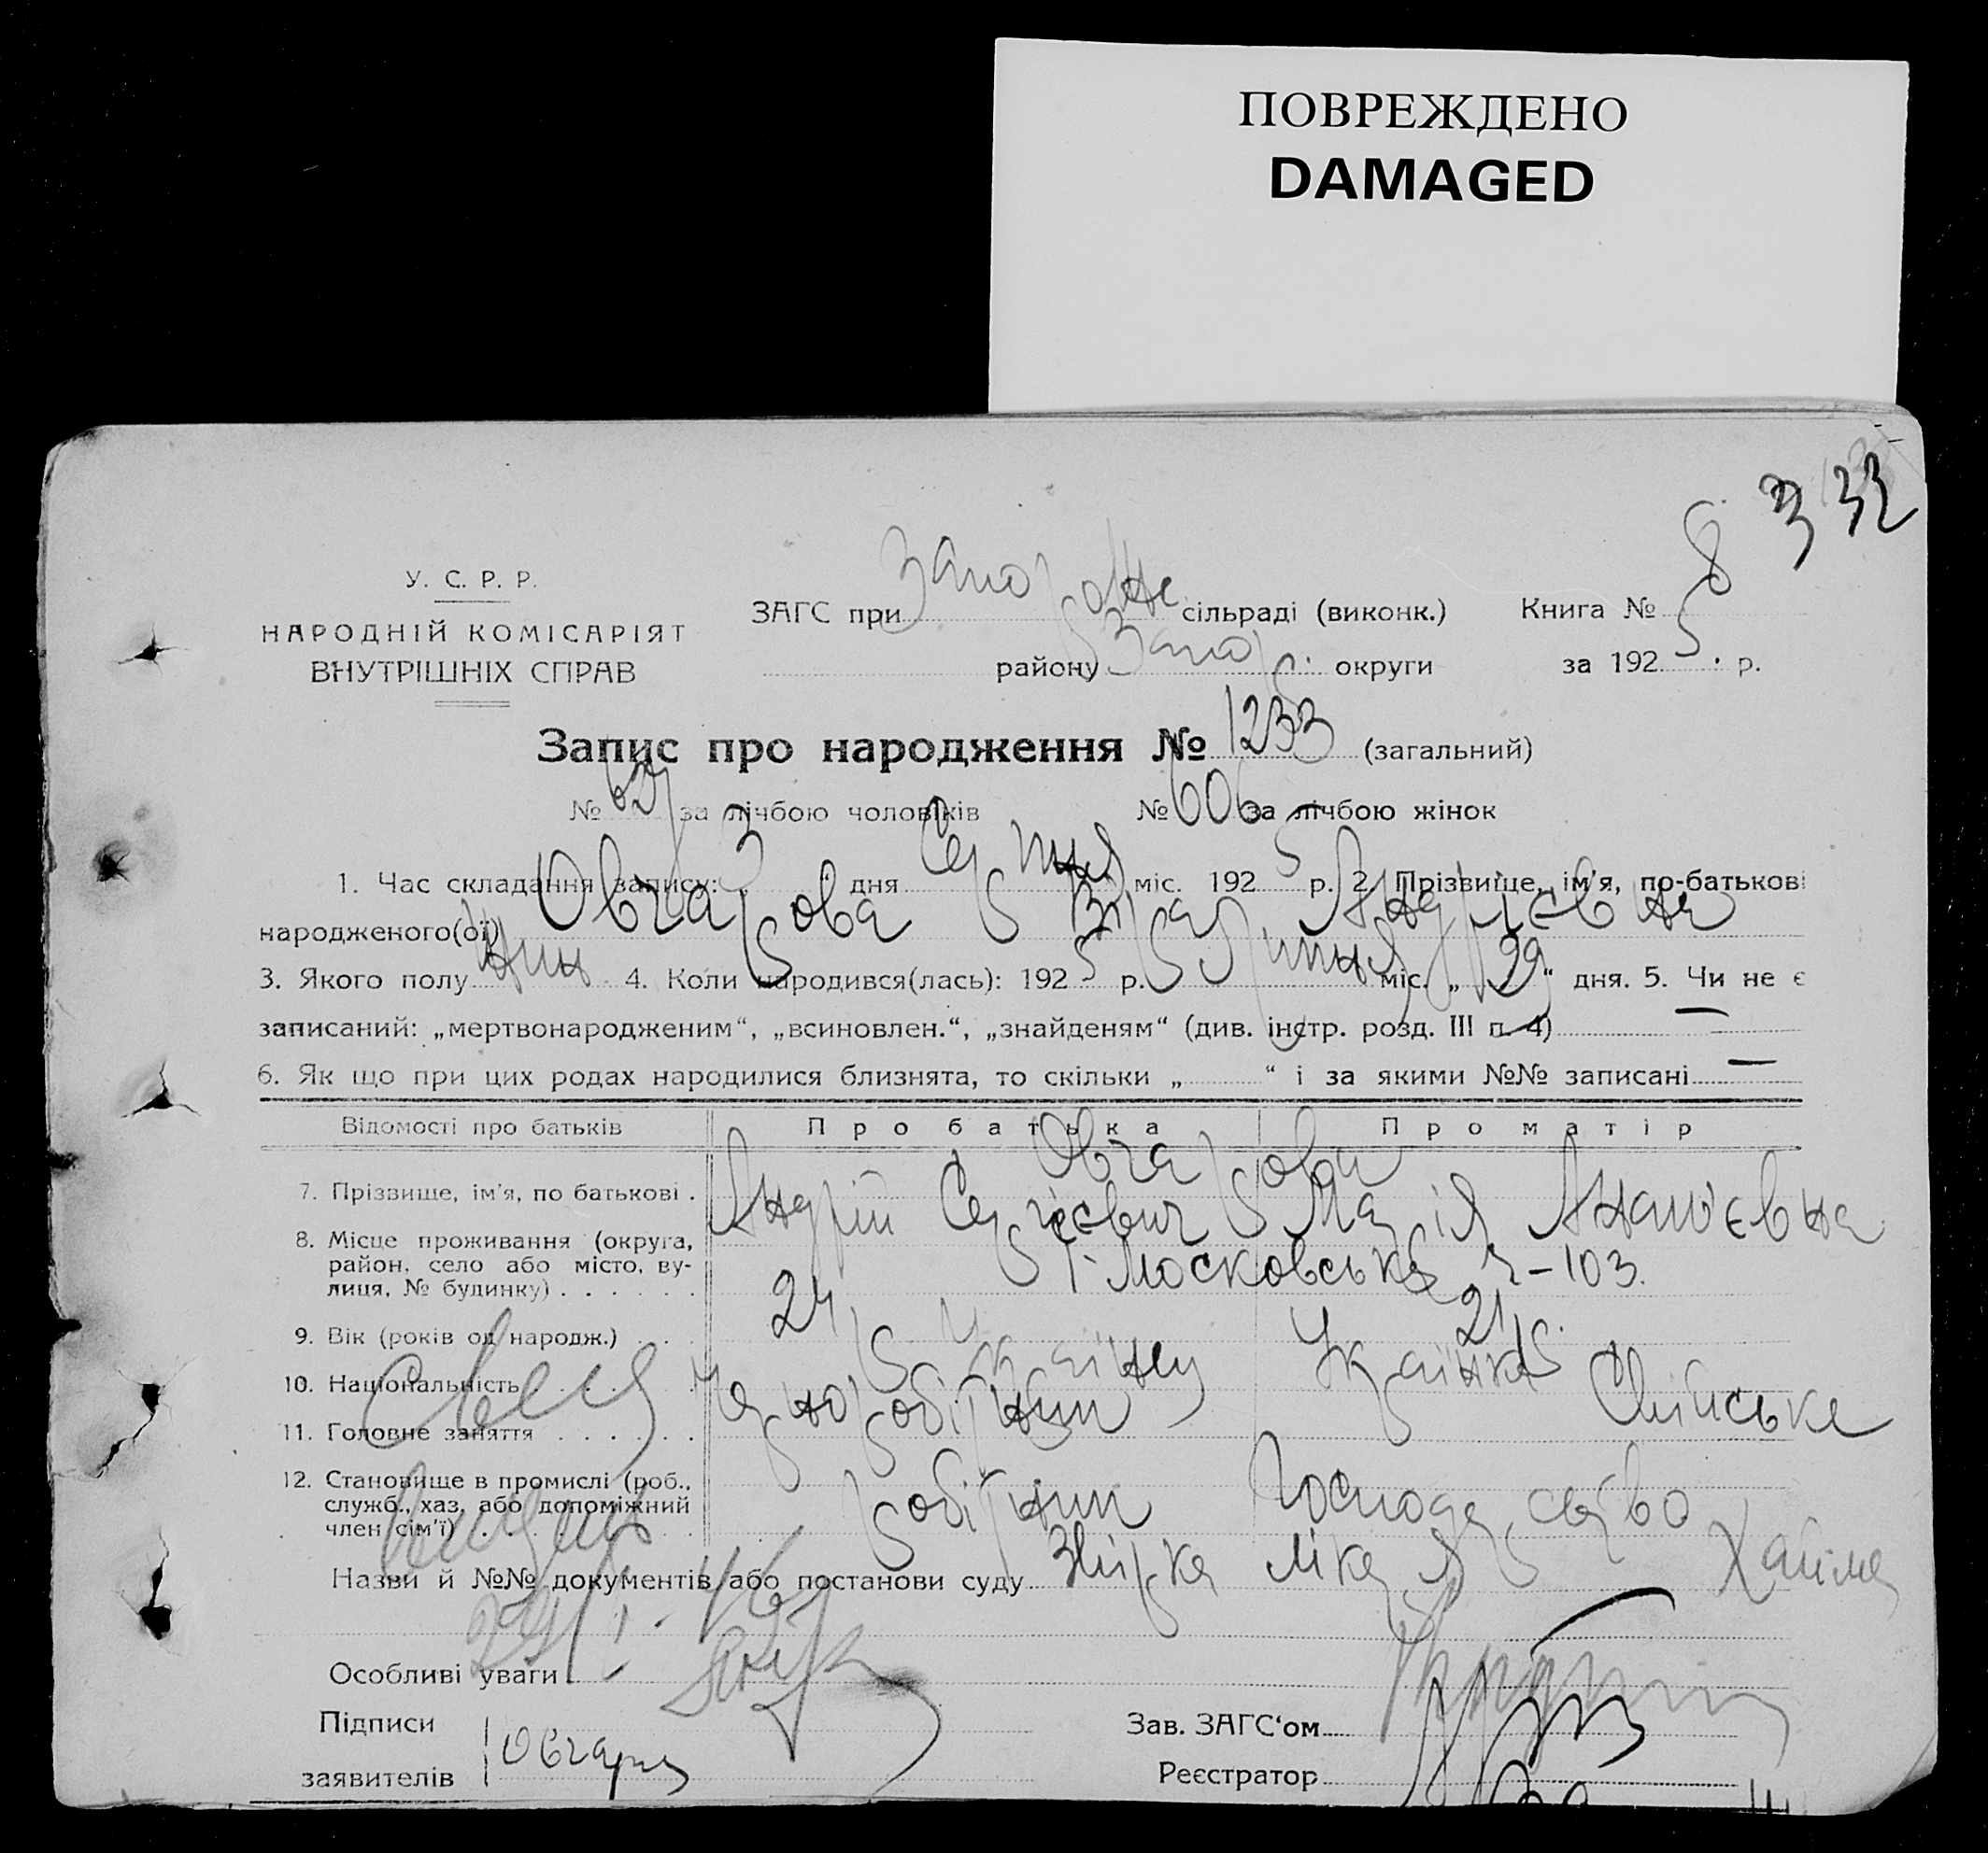 ПОВРЕЖДЕНО
DAMAGED
3 32
У. С. Р. Р.
НАРОДНІЙ КОМІСАРІЯТ
ВНУТРІШНІХ СПРАВ
ЗАГС при Запорожс. сільраді (виконк.) Книга № 8
району Запор. округи за 1925 р.
Запис про народження № 1233 (загальний)
№ 627 за лічбою чоловіків № 606 за лічбою жінок
1. Час складання запису: 3 дня Серпня міс. 1925 р. 2. Прізвище, ім'я, по-батькові
народженого(ої) Овчарова Віра Андрієвна
3. Якого полу жин 4. Коли народився(лась): 1925 р. Липня міс. „ 29 “ дня. 5. Чи не є
записаний: „мертвонародженим“, „всиновлен.“, „знайденям“ (див. інстр. розд. III п. 4) —
6. Як що при цих родах народилися близнята, то скільки „ “ і за якими №№ записані —
Відомості про батьків Про батька Про матір
Овчарови
7. Прізвище, ім'я, по батькові . Андрій Сергієвич Марія Анан'євна
8. Місце проживання (округа,
район, село або місто, ву-
лиця, № будинку) . . . . . . Московська ч-103.
9. Вік (років од народж.) . . . 24 р. 21 р.
10. Національність . . . . . . Українец Українка
11. Головне заняття . . . . . . Чорноробітник Хатнське
12. Становище в промислі (роб.,
служб., хаз, або допоміжний
член сім'ї) . . . . . . . . робітник Господарство
Назви й №№ документів або постанови суду Звірка лікаря
Особливі уваги
Підписи
заявителів Овчаров
Зав. ЗАГС'ом
Реєстратор